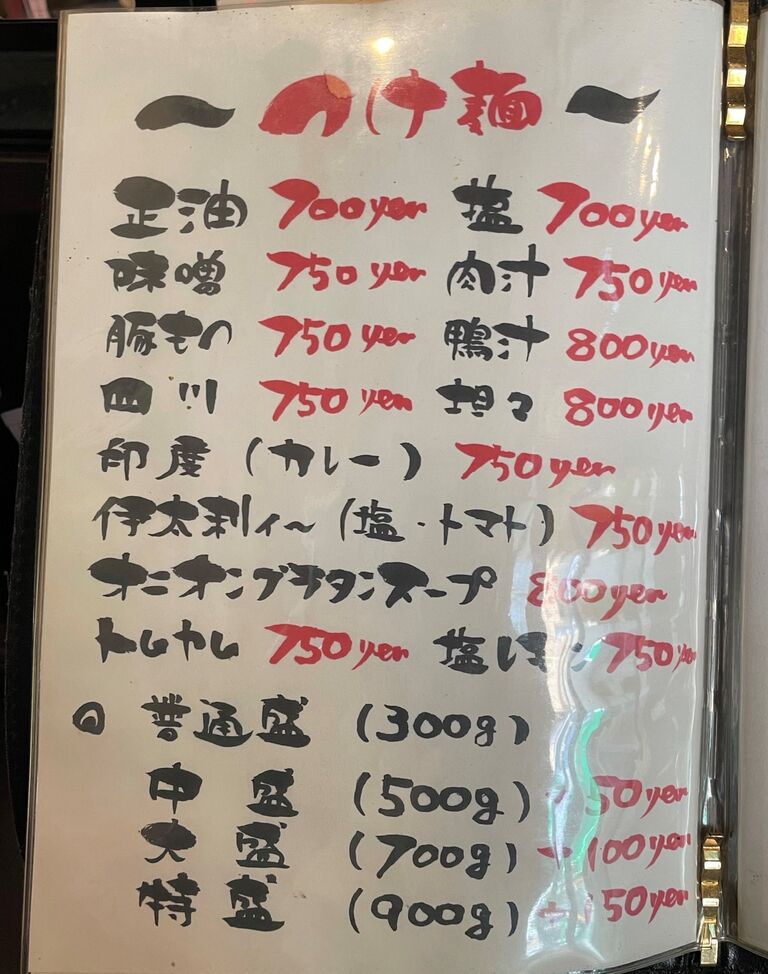 〜つけ麺〜
正油 700yen 塩 700yen
味噌 750yen 肉汁 750yen
豚もつ 750yen 鴨汁 800yen
四川 750yen 坦々 800yen
印度(カレー) 750yen
伊太利ィ〜(塩・トマト) 750yen
オニオングラタンスープ 800yen
トムヤム 750yen 塩レモン 750yen
◎ 普通盛 (300g)
中盛 (500g) + 50yen
大盛 (700g) + 100yen
特盛 (900g) + 150yen